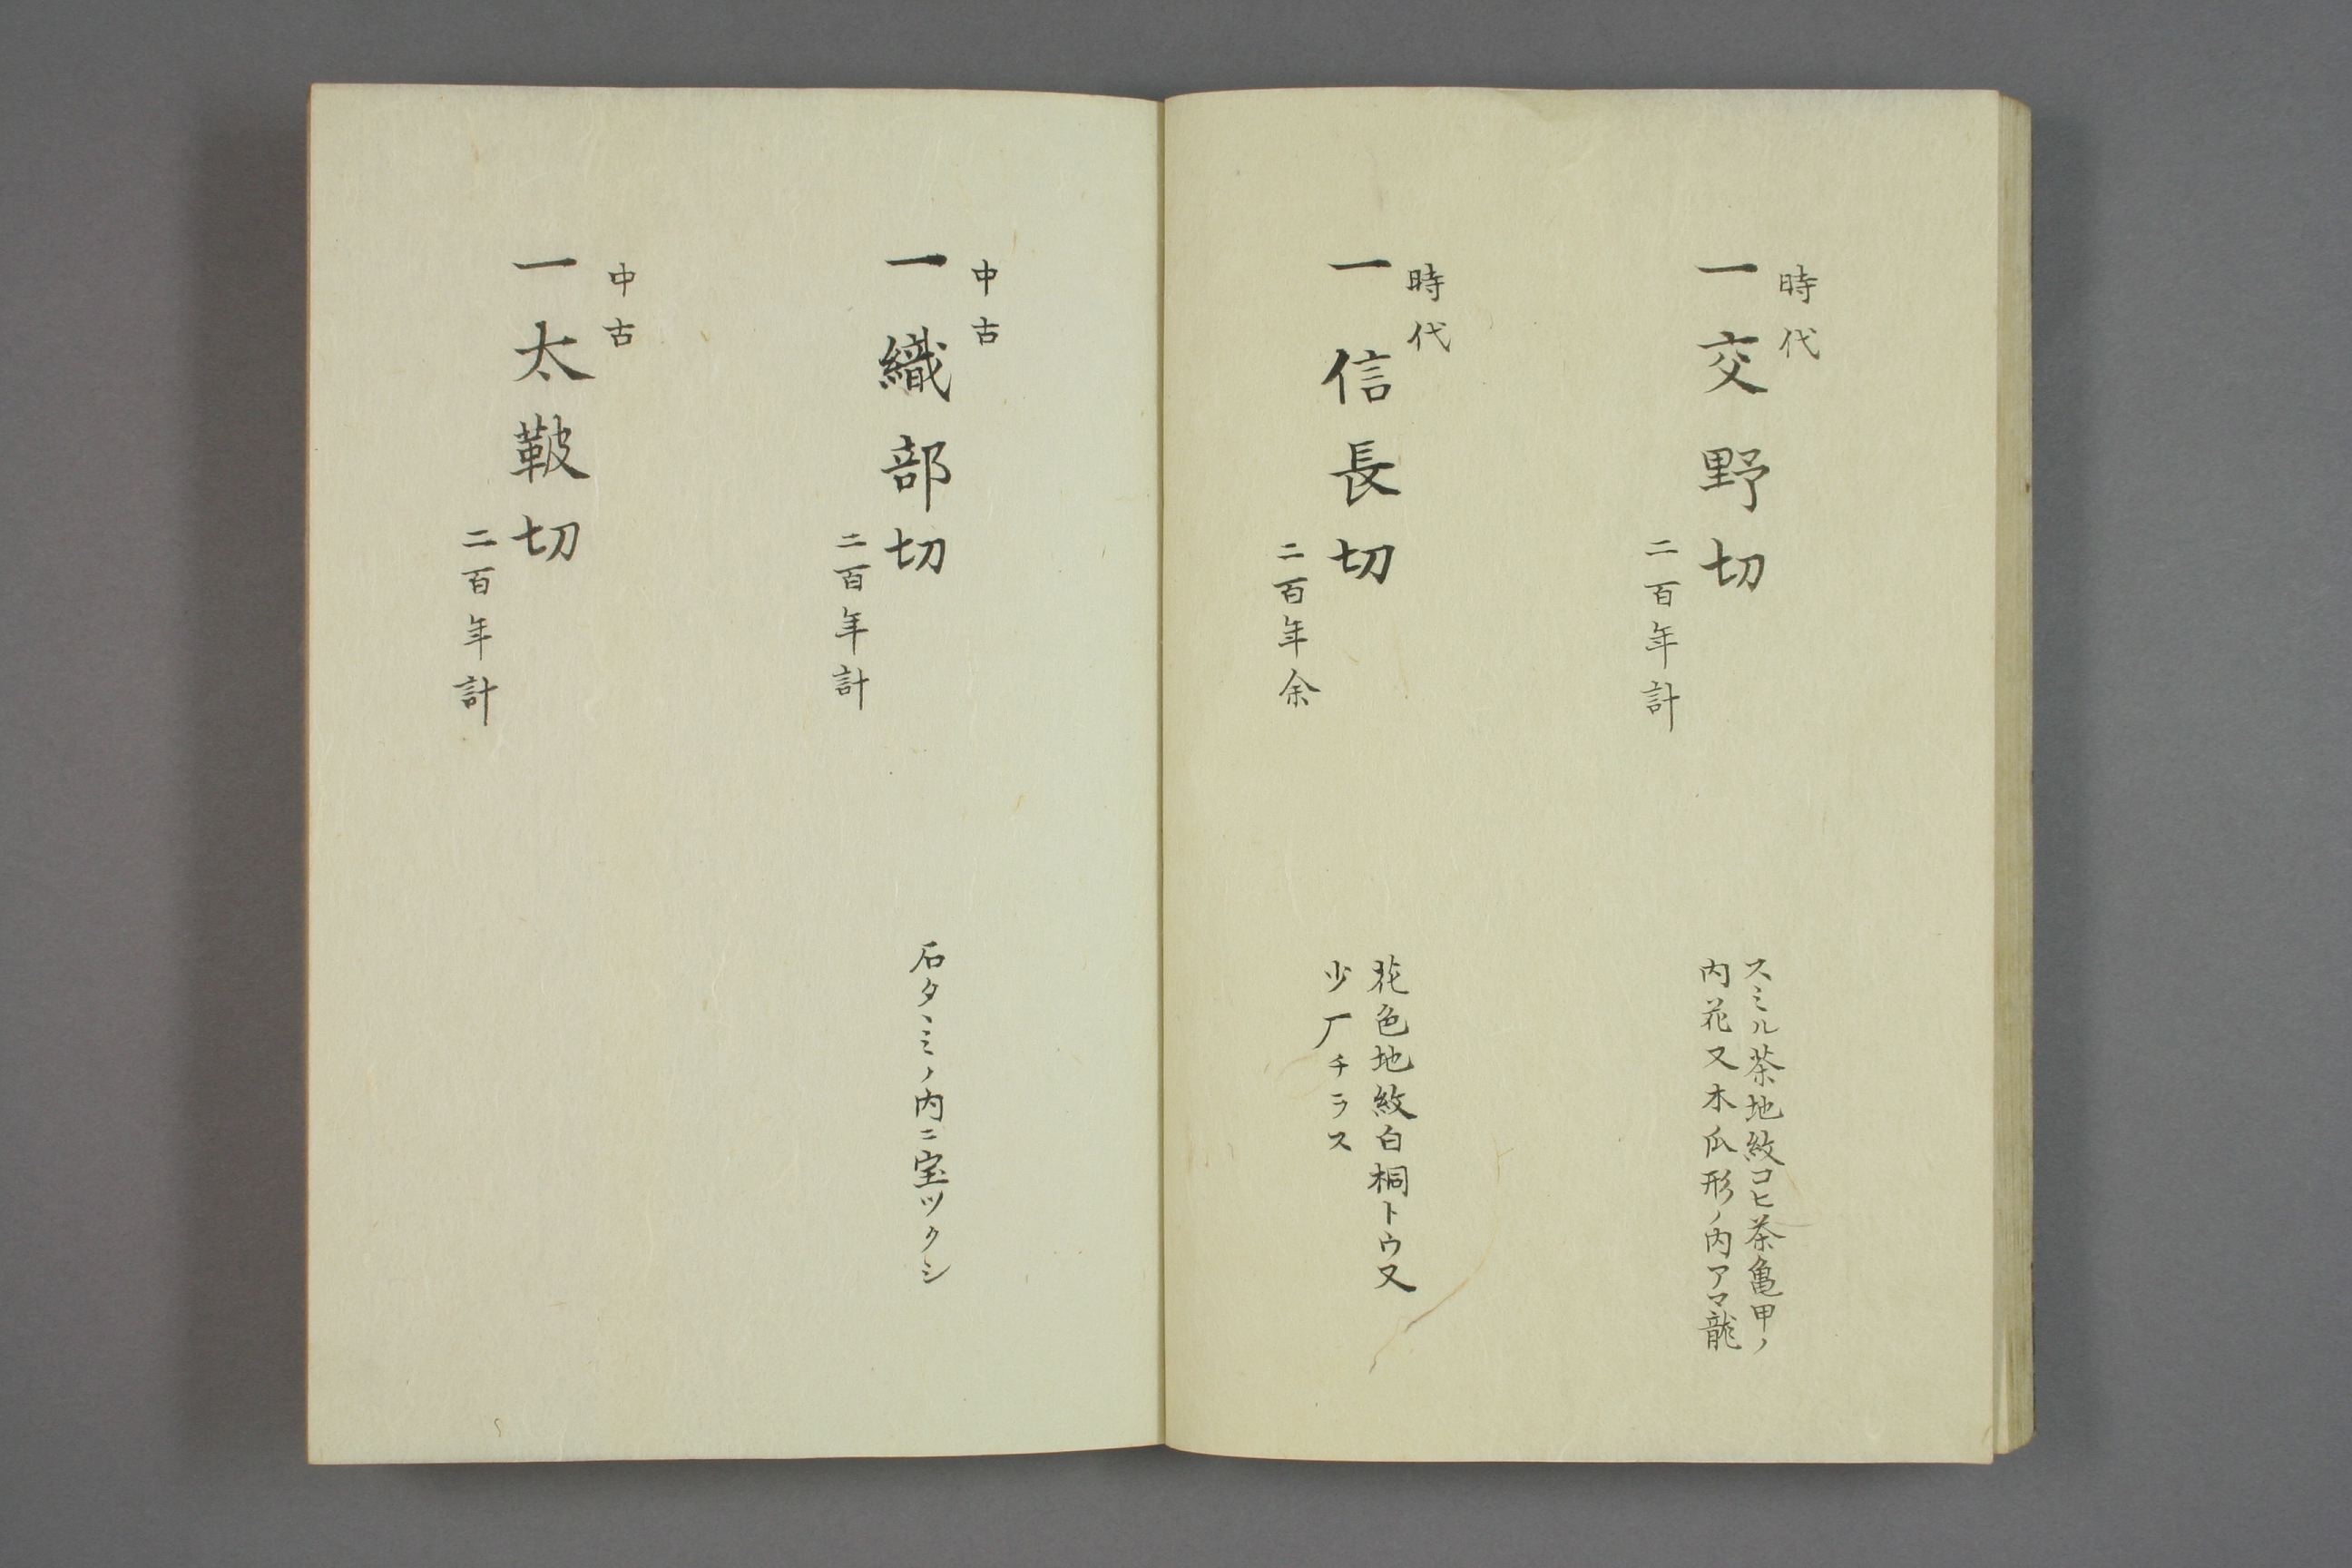 時代
一交野切
二百年計
スミル茶地紋コヒ茶亀甲ノ
内花又木瓜形ノ内アマ龍
時代
一信長切
二百年余
花色地紋白桐トウ又
少厂チラス
中古
一織部切
二百年計
石タヽミノ内ニ宝ツクシ
中古
一太鞁切
二百年計